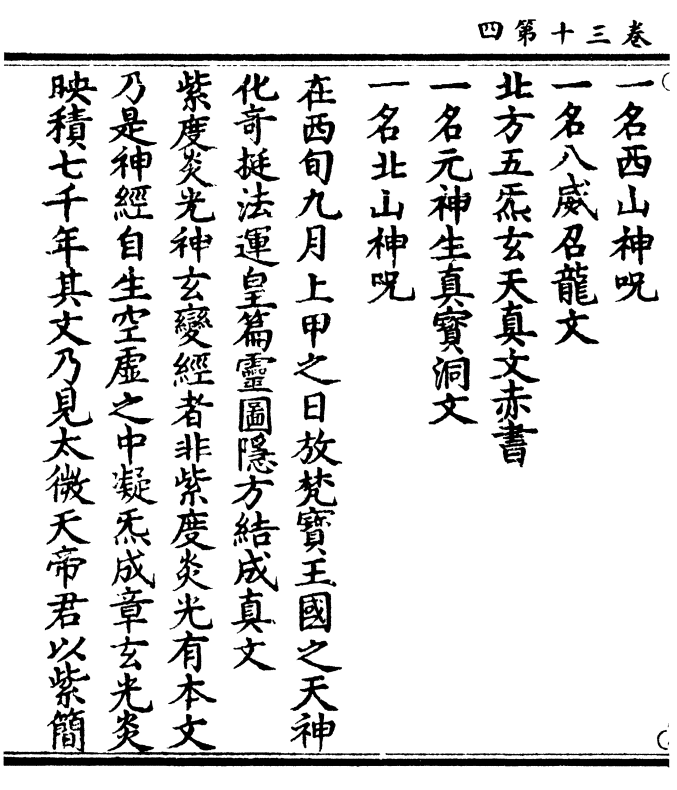 卷三十第四
一名西山神呪
一名八威召龍文
北方五炁玄天真文赤書
一名元神生真寶洞文
一名北山神呪
在西旬九月上甲之日放梵寶王國之天神
化奇挺法運皇篇靈圖隱方結成真文
紫度炎光神玄變經者非紫度炎光有本文
乃是神經自生空虛之中凝炁成章玄光炎
映積七千年其文乃見太微天帝君以紫簡